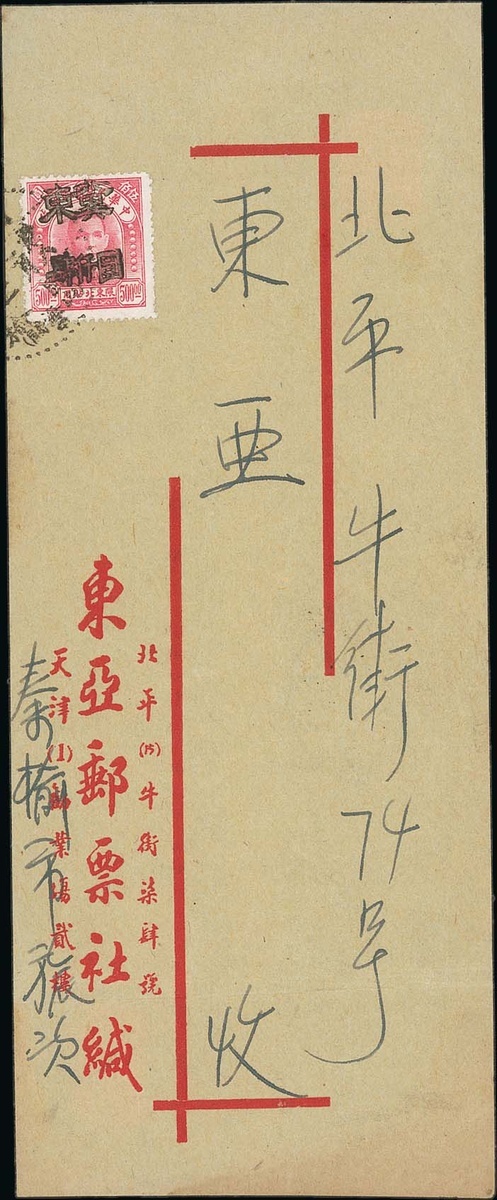 北平牛街74号
東亜 收
北平(15)牛街柒肆號
東亞郵票社緘
天津(1)勸業場貳樓
秦榆市張次
冀東
圓
500 00